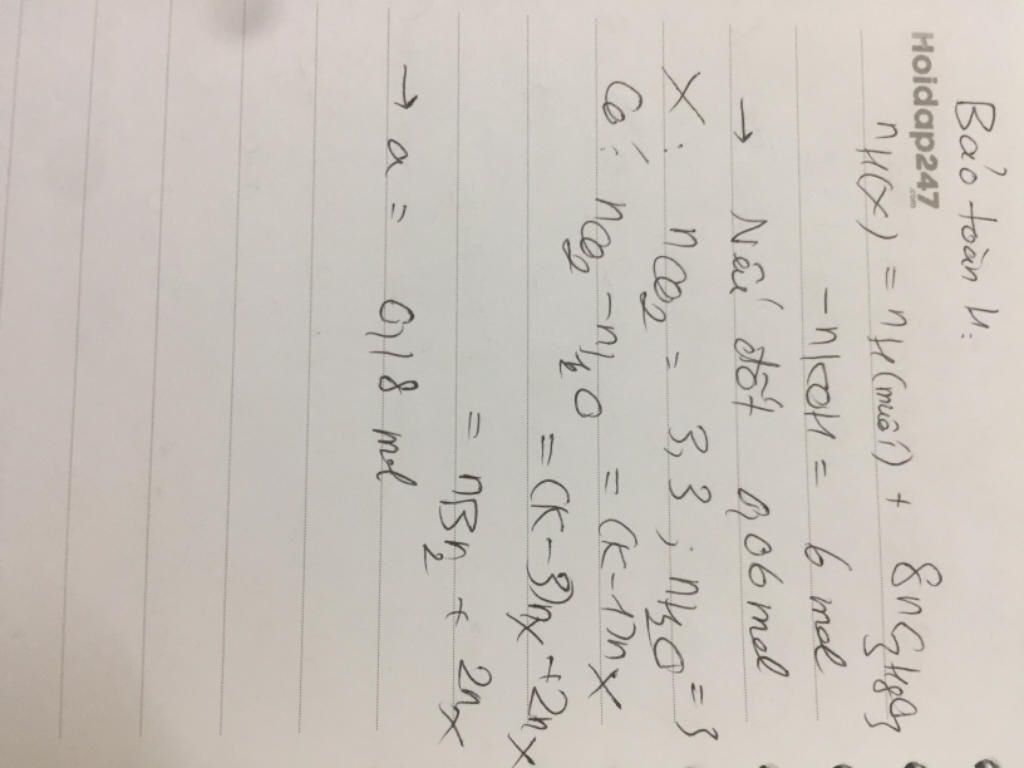 Bảo toàn H:
Hoidap247
.com
nH(X) = nH(muối) + 8nC3H8O3
-nKOH = 6 mol
→ Nếu đốt 0,06 mol
X: nCO2 = 3,3 ; nH2O = 3
Có: nCO2 - nH2O = (k-1)nX
= (k-3)nX + 2nX
= nBr2 + 2nX
→ a = 0,18 mol